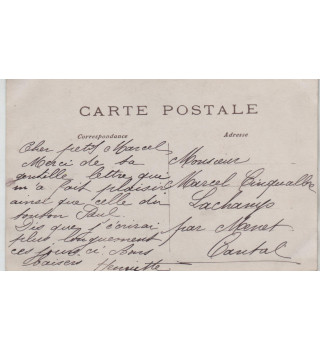 CARTE POSTALE
Correspondance
Adresse
Cher petit Marcel
Merci de ta
gentille lettre qui
m'a fait plaisir
ainsi que celle du
tonton Paul.
Dis que j'écrirai
plus longuement
ces jours ci. Bons
baisers Henriette
Monsieur
Marcel Cinqualbre
Lachamp
par Menet
Cantal